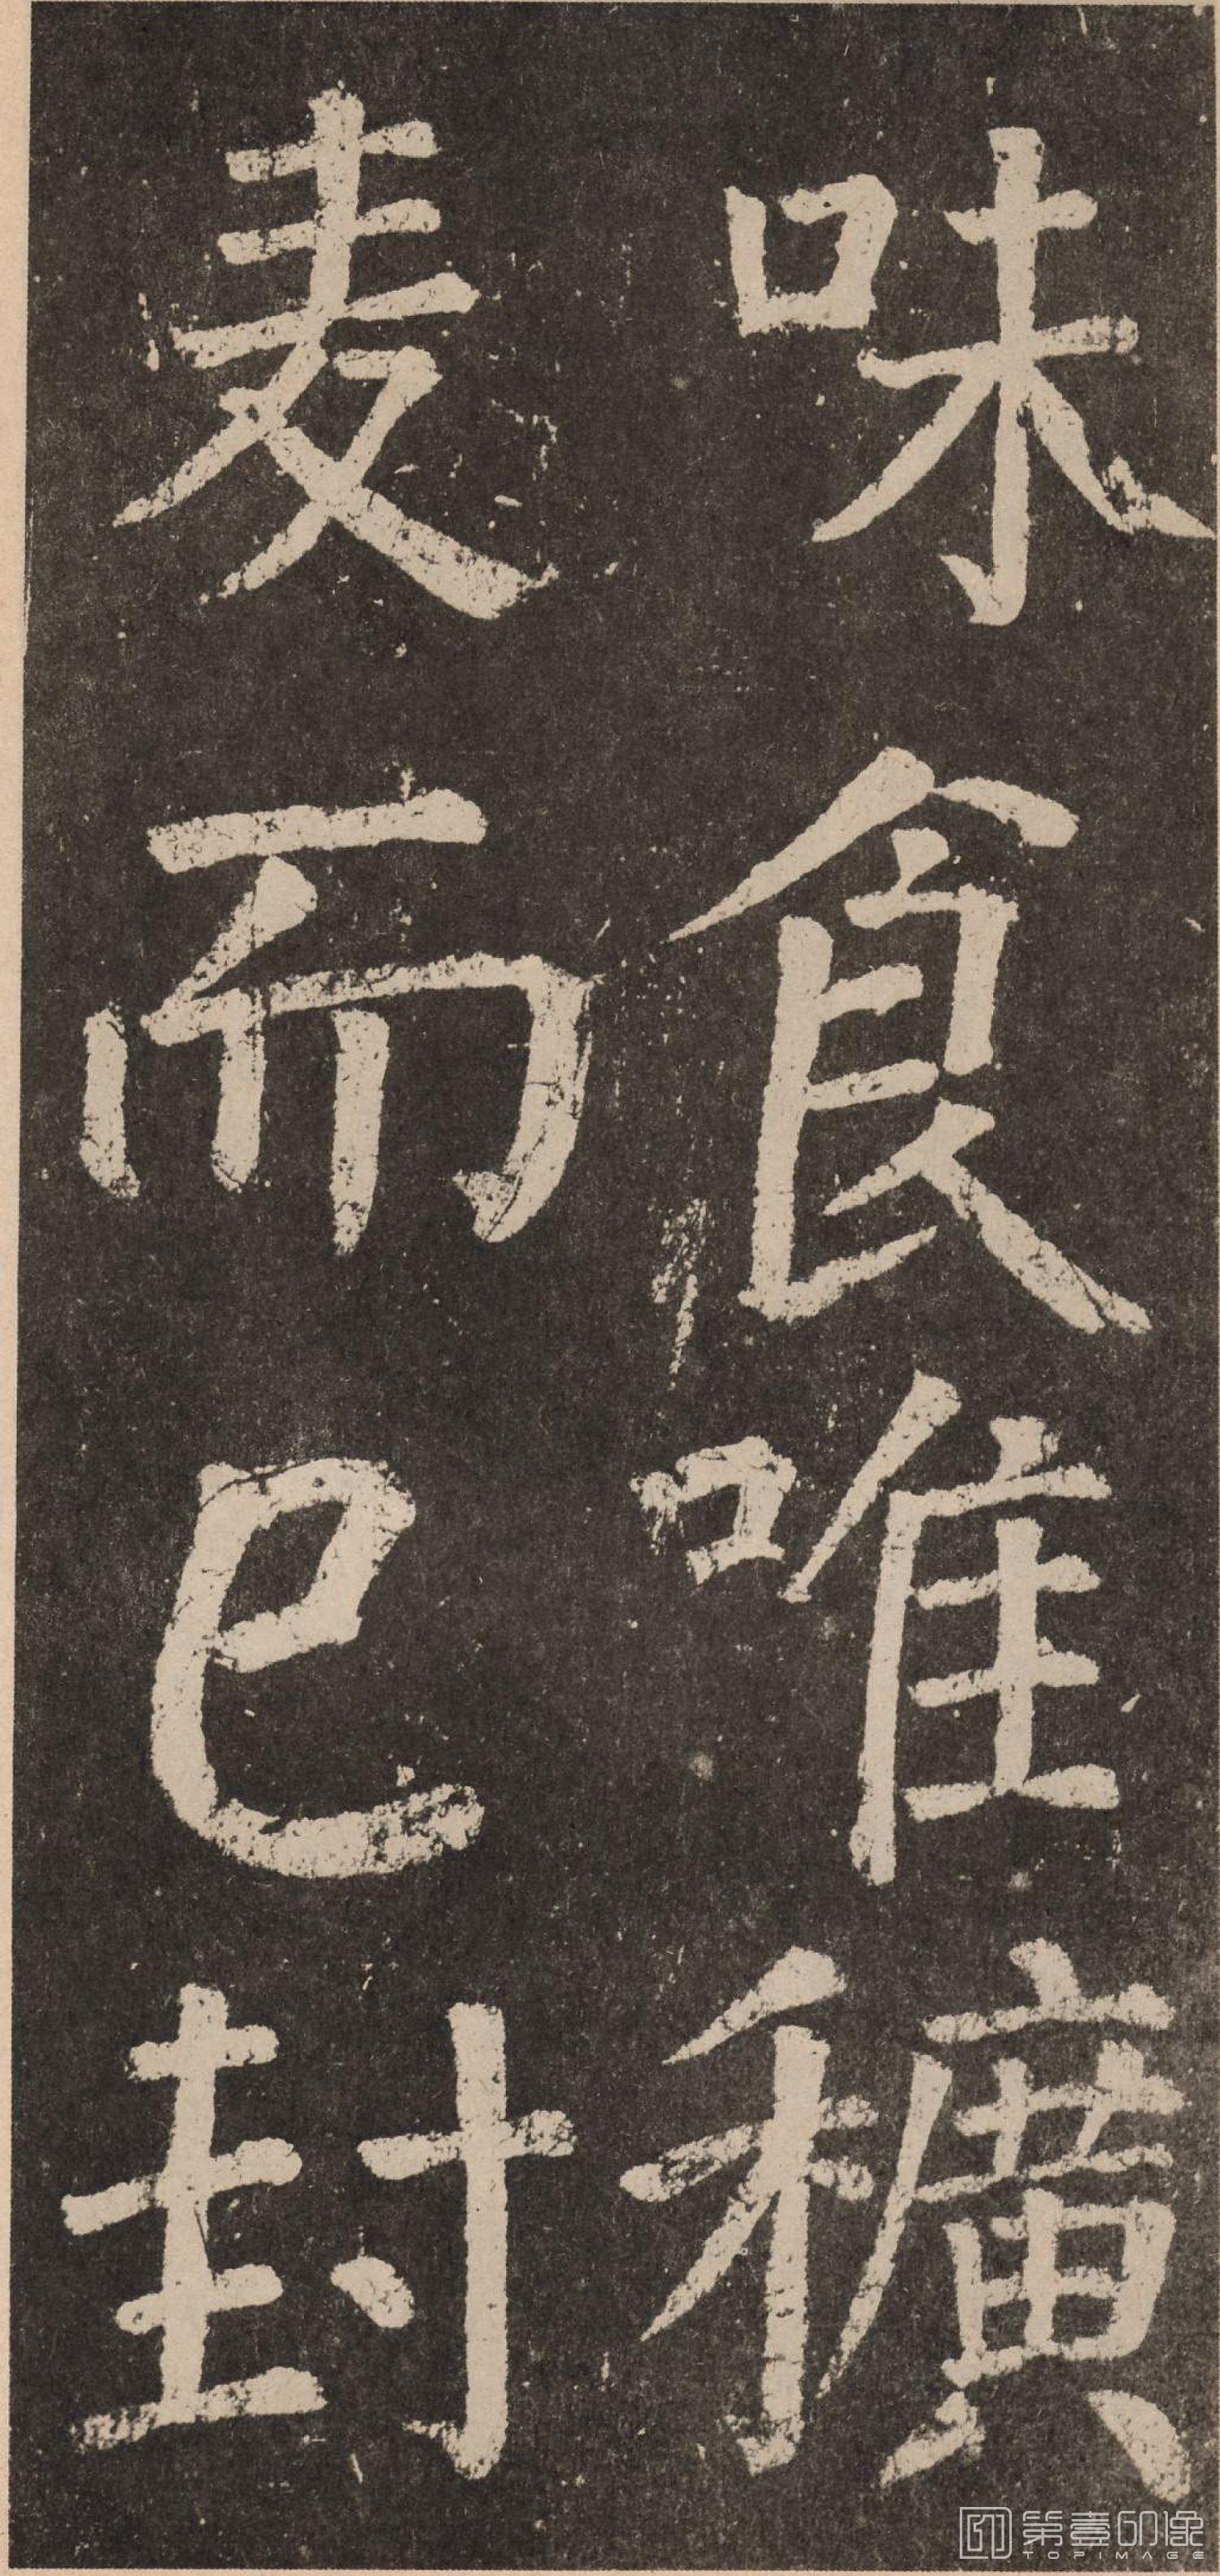 味食唯穬
麦而已封
第壹印像
TOPIMAGE